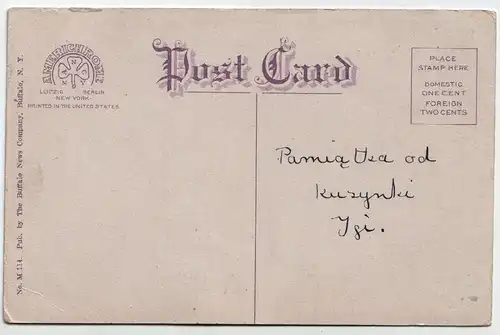 AMERICHROME
LEIPZIG BERLIN
NEW YORK
PRINTED IN THE UNITED STATES
Post Card
PLACE
STAMP HERE
DOMESTIC
ONE CENT
FOREIGN
TWO CENTS
Pamiątka od
kuzynki
Igi.
No. M 114 Pub. by The Buffalo News Company, Buffalo, N. Y.